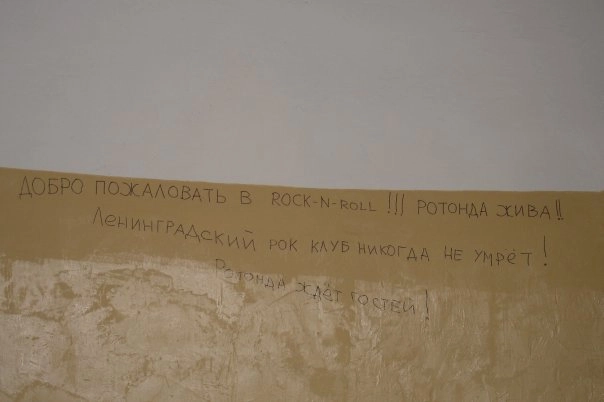 ДОБРО ПОЖАЛОВАТЬ В ROCK-N-ROLL !!! РОТОНДА ЖИВА!!
ЛЕНИНГРАДСКИЙ РОК КЛУБ НИКОГДА НЕ УМРЁТ!
РОТОНДА ЖДЁТ ГОСТЕЙ!